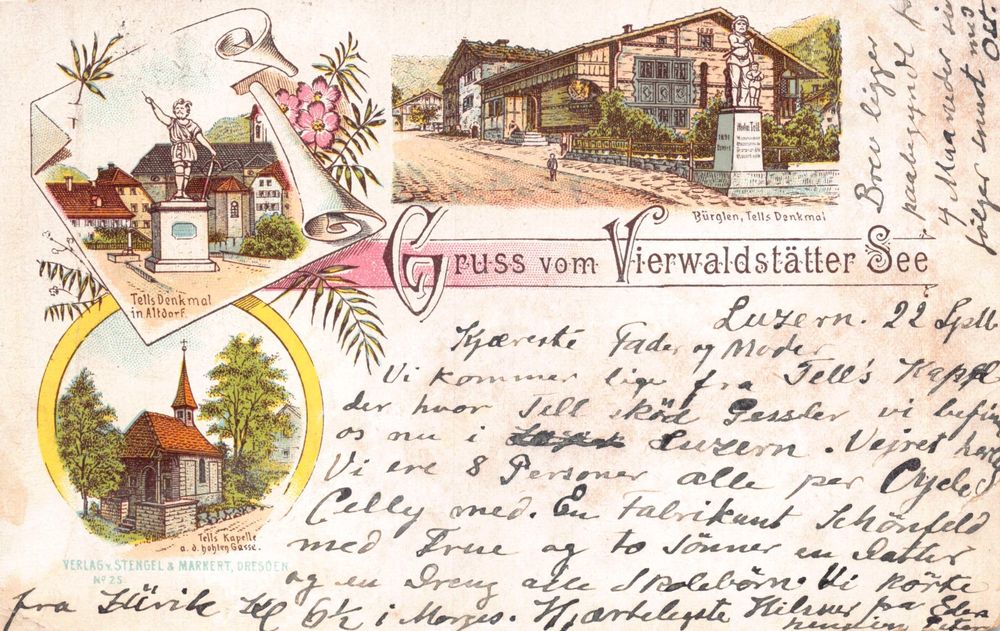 Tells Denkmal
in Altdorf.
Bürglen, Tells Denkmal
GRUSS VOM VIERWALDSTÄTTER SEE
Tells Kapelle
a. d. hohlen Gasse.
VERLAG v. STENGEL & MARKERT, DRESDEN
No 25
Luzern. 22 Sptb
Kjæreste Fader og Moder
Vi kommer lige fra Tell's Kapel
der hvor Tell sköd Gessler vi befin
os nu i Luzern. Vejret
Vi ere 8 Personer alle per Cycle
Celly med. En Fabrikant Schönfeld
med Frue og to Sönner en Datter
og en Dreng alle Skolebörn. Vi körte
fra Zürik Kl 6½ i Morges. Hjærteligste Hilsner fra
Brev ligger
4
følger